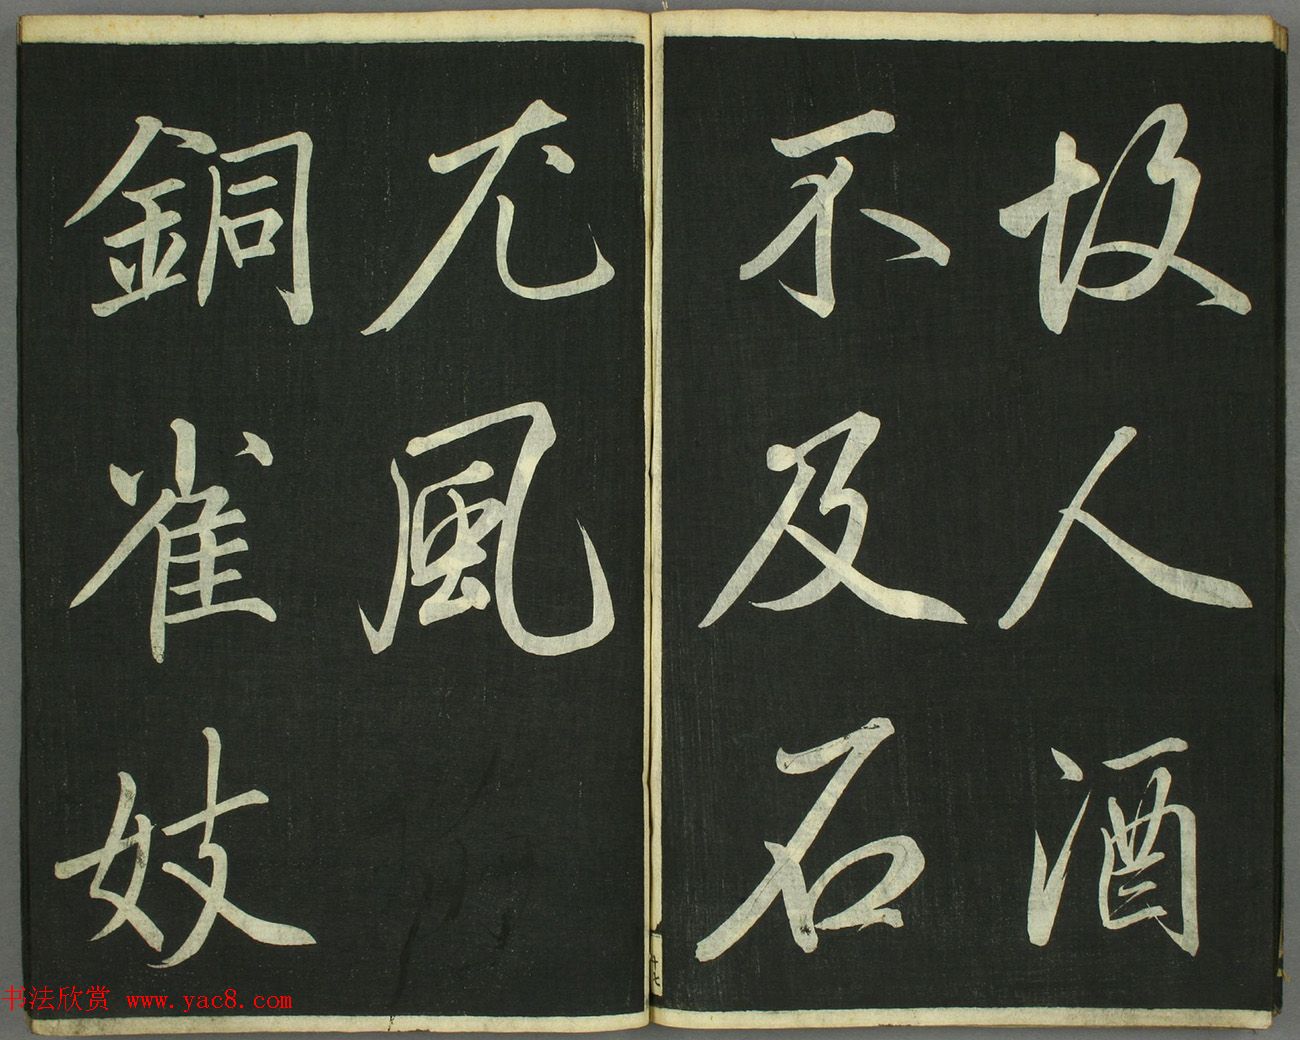 故人酒
不及石
尤風
銅雀妓
十七
书法欣赏 www.yac8.com